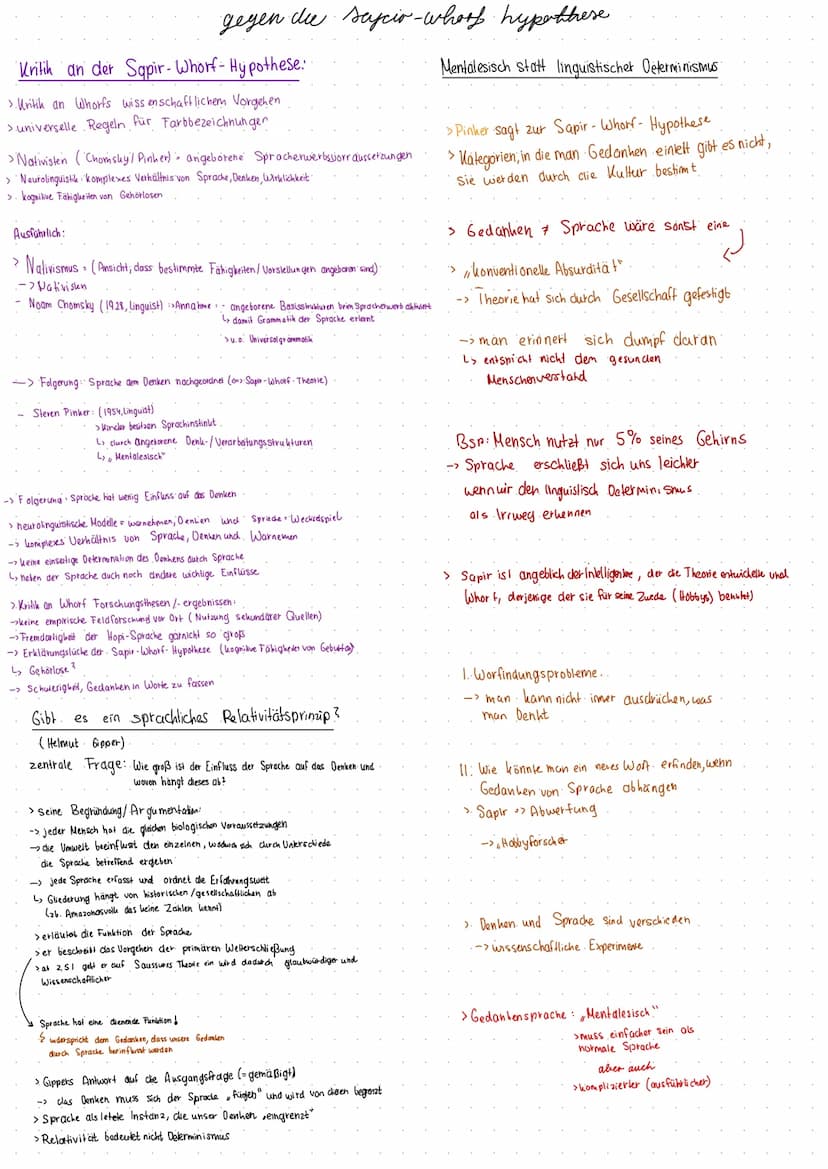 gegen die sapir-whorf hypothese
Kritik an der Sapir-Whorf-Hypothese:
> Kritik an Whorfs wissenschaftlichem Vorgehen
> universelle Regeln für Farbbezeichnungen
> Nativisten (Chomsky/Pinker) = angeborene Spracherwerbsvorraussetzungen
> Neurolinguistik: komplexes Verhältnis von Sprache, Denken, Wirklichkeit
> kognitive Fähigkeiten von Gehörlosen
Ausführlich:
> Nativismus = (Ansicht, dass bestimmte Fähigkeiten/Vorstellungen angeboren sind)
-> Nativisten
- Noam Chomsky (1928, Linguist) -> Annahme: - angeborene Basisstrukturen beim Spracherwerb aktiviert
↳ damit Grammatik der Sprache erlernt
> u.a. Universalgrammatik
-> Folgerung: Sprache dem Denken nachgeordnet (<-> Sapir-Whorf-Theorie)
- Steven Pinker: (1954, Linguist)
> Kinder besitzen Sprachinstinkt
↳ durch angeborene Denk-/Verarbeitungsstrukturen
↳ „Mentalesisch"
-> Folgerung: Sprache hat wenig Einfluss auf das Denken
> neurolinguistische Modelle = warnehmen, Denken und Sprache = Wechselspiel
-> komplexes Verhältnis von Sprache, Denken und Warnemen
-> keine einseitige Determination des Denkens durch Sprache
↳ neben der Sprache auch noch andere wichtige Einflüsse
> Kritik an Whorf Forschungsthesen/-ergebnissen:
-> keine empirische Feldforschung vor Ort (Nutzung sekundärer Quellen)
-> Fremdartigkeit der Hopi-Sprache garnicht so groß
-> Erklärungslücke der Sapir-Whorf-Hypothese (kognitive Fähigkeiten von
↳ Gehörlose?
-> Schwierigkeit, Gedanken in Worte zu fassen
Gibt es ein sprachliches Relativitätsprinzip?
(Helmut Gipper)
zentrale Frage: Wie groß ist der Einfluss der Sprache auf das Denken und
wovon hängt dieses ab?
> seine Begründung/Argumentation:
-> jeder Mensch hat die gleichen biologischen Vorraussetzungen
-> die Umwelt beeinflust den einzelnen, wodurch sich durch Unterschiede
die Sprache betreffend ergeben
-> jede Sprache erfasst und ordnet die Erfahrungswelt
↳ Gliederung hängt von historischen/gesellschaftlichen ab
(zb. Amazonasvolk das keine Zahlen kennt)
> erläutet die Funktion der Sprache
> er beschreibt das Vorgehen der primären Welterschließung
> ab Z.51 geht er auf Saussures Theorie ein wird dadurch glaubwürdiger und
Wissenschaftlicher
Sprache hat eine dienende Funktion!
widerspricht dem Gedanken, dass unsere Gedanken
durch Sprache beeinflusst werden
> Gippers Antwort auf die Ausgangsfrage (= gemäßigt)
-> das Denken muss sich der Sprache „fügen" und wird von dieser begrenzt
> Sprache als letzte Instanz, die unser Denken „eingrenzt"
> Relativität bedeutet nicht Determinismus
Mentalesisch statt linguistischer Determinismus
> Pinker sagt zur Sapir-Whorf-Hypothese
> Kategorien, in die man Gedanken einteilt gibt es nicht,
sie werden durch die Kultur bestimt
> Gedanken ≠ Sprache wäre sonst eine
> „konventionelle Absurdität"
-> Theorie hat sich durch Gesellschaft gefestigt
-> man erinnert sich dumpf daran
↳ entspricht nicht dem gesunden
Menschenverstand
Bsp: Mensch nutzt nur 5% seines Gehirns
-> Sprache erschließt sich uns leichter
wenn wir den linguistisch Determinismus
als Irrweg erkennen
> Sapir ist angeblich der Intelligente, der die Theorie entwickelte und
Whorf, derjenige der sie für seine Zwecke (Hobbys) benutzt)
I. Worfindungsprobleme.
-> man kann nicht immer ausdrücken, was
man Denkt
II. Wie könnte man ein neues Wort erfinden, wenn
Gedanken von Sprache abhängen
> Sapir -> Abwertung
-> „Hobbyforscher
> Denken und Sprache sind verschieden
-> wissenschaftliche Experimente
> Gedankensprache: „Mentalesisch"
> muss einfacher sein als
normale Sprache
aber auch
> komplizierter (ausführlicher)